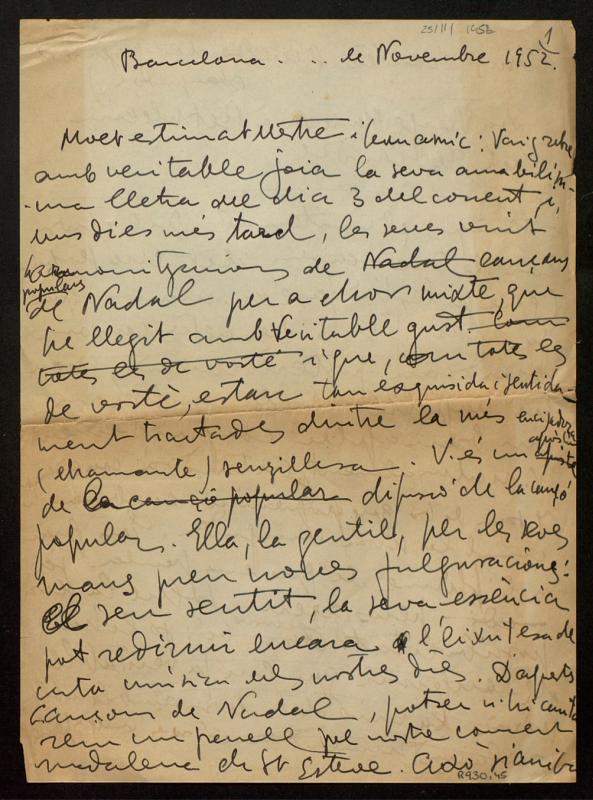 25/11/1952
1
Barcelona ... de Novembre 1952.
Molt estimat Mestre i bon amic: Vaig rebre
amb veritable joia la seva amabilíssi-
ma lletra del dia 3 del corrent, i,
uns dies més tard, les seves vuit
harmonitzacions de Nadal cançons
populars
de Nadal per a chor mixte, que
he llegit amb veritable gust. Com
totes les de vostè i que, com totes les
de vostè, estan tan exquisida i sentida-
ment tractades dintre la més encisadora
(charmante) senzillesa. V. és un apòstol
de la cançó popular difusió de la cançó
popular. Ella, la gentil, per les seves
mans pren noves fulguracions:
El seu sentit, la seva essència
pot redimir encara l'eixutesa de
certa música dels nostres dies. D'aquestes
Cançons de Nadal, potser n'hi canta
rem un parell pel nostre concert
de St Esteve. Això s'arriba
R930,45